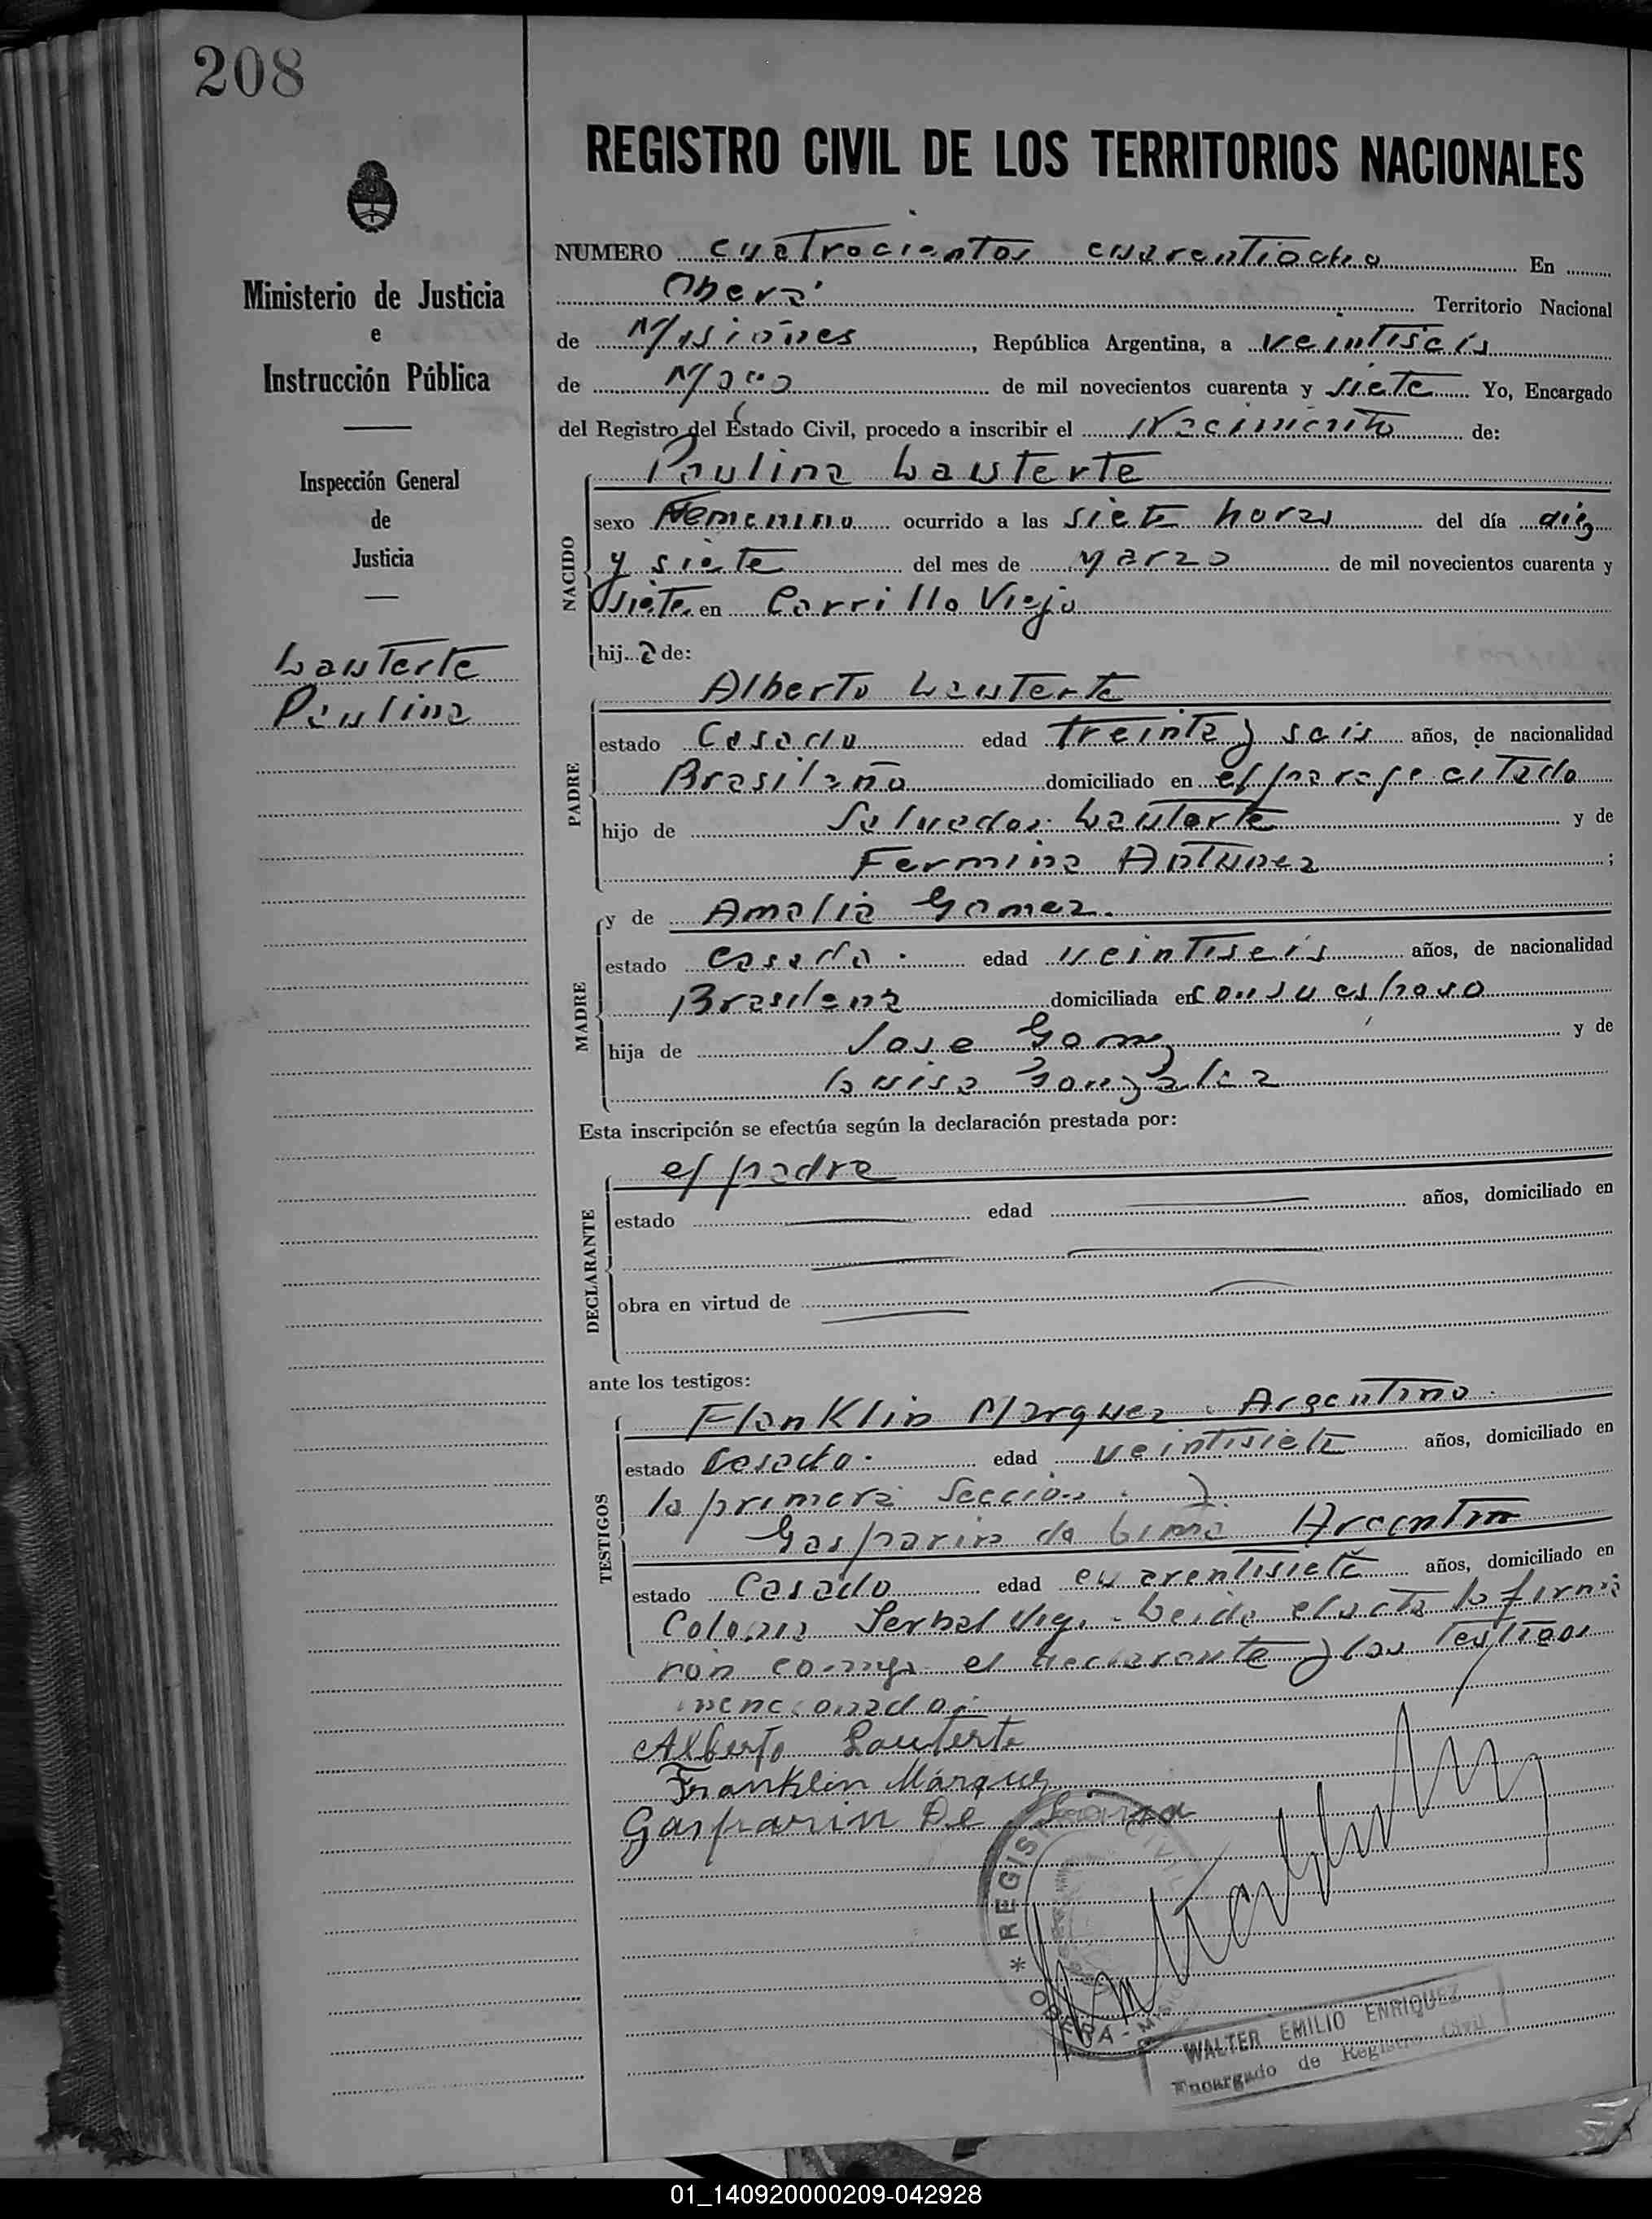 208
REGISTRO CIVIL DE LOS TERRITORIOS NACIONALES
Ministerio de Justicia
e
Instrucción Pública
Inspección General
de
Justicia
Lauterte
Paulina
NUMERO cuatrocientos cuarentiocho En
Oberá Territorio Nacional
de Misiones, República Argentina, a veintiseis
de Mayo de mil novecientos cuarenta y siete Yo, Encargado
del Registro del Estado Civil, procedo a inscribir el Nacimiento de:
NACIDO
Paulina Lauterte
sexo Femenino ocurrido a las siete horas del día diez
y siete del mes de Marzo de mil novecientos cuarenta y
siete en Cerrillo Viejo
hija de:
PADRE
Alberto Lauterte
estado Casado edad treinta y seis años, de nacionalidad
Brasileño domiciliado en el paraje citado
hijo de Salvador Lauterte y de
Fermina Antunez ;
MADRE
y de Amalia Gomez.
estado casada. edad veintiseis años, de nacionalidad
Brasilena domiciliada en con su esposo
hija de Jose Gomez y de
Luisa Gonzalez
Esta inscripción se efectúa según la declaración prestada por:
DECLARANTE
el padre
estado edad años, domiciliado en
obra en virtud de
ante los testigos:
TESTIGOS
Flanklin Marquez. Argentino.
estado Casado. edad veintisiete años, domiciliado en
la primera Seccion. y
Gasparin de Lima Argentino
estado Casado edad cuarentisiete años, domiciliado en
Colonia Leida el acta la firma
ron conmigo el declarante y los testigos
mencionados.
Alberto Lauterte
Franklin Márquez
Gasparin De Lima
* REGISTRO CIVIL
OBERÁ - MISIONES
WALTER EMILIO ENRIQUEZ
Encargado de Registro Civil
01_140920000209-042928